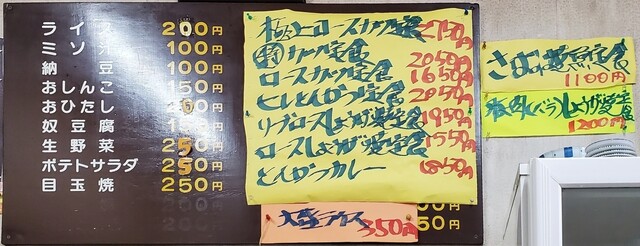 ライス 200円
ミソ汁 100円
納豆 100円
おしんこ 150円
おひたし
奴豆腐
生野菜 250円
ポテトサラダ 250円
目玉焼 250円
極上ロースカツ定食 2150円
カツ定食 2050円
ロースカツ定食 1650円
ヒレとんかつ定食 2050円
リブロースしょうが焼定食 1950円
ロースしょうが焼定食 1550円
とんかつカレー
大盛ライス 350円
50円
さばの煮定食 1100円
バラしょうが焼定食 1200円